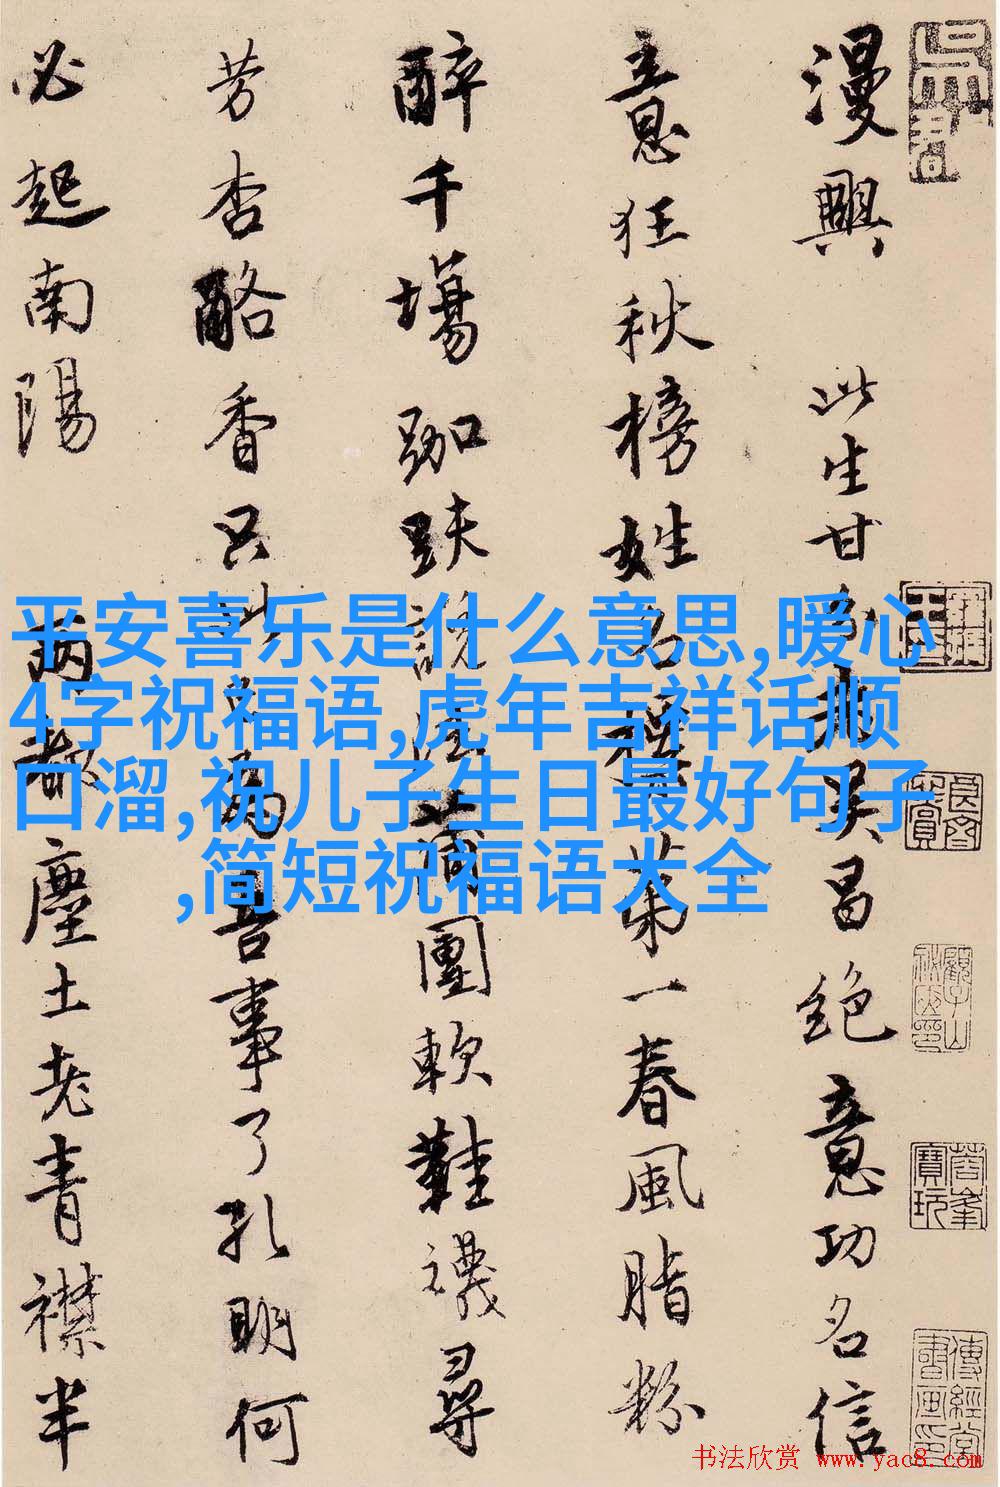 漫興 此生甘分老吴昌絶意功名信
意狂秋榜姓名標第一春風脂粉
醉千場跏趺説法蒲團軟鞋襪尋
芳杏酪香只此便為吾事了孔明何
必起南陽 兩都塵土老青襟半
平安喜乐是什么意思,暖心
4字祝福语,虎年吉祥话顺
口溜,祝儿子生日最好句子
,简短祝福语大全
书法欣赏 www.yac8.com